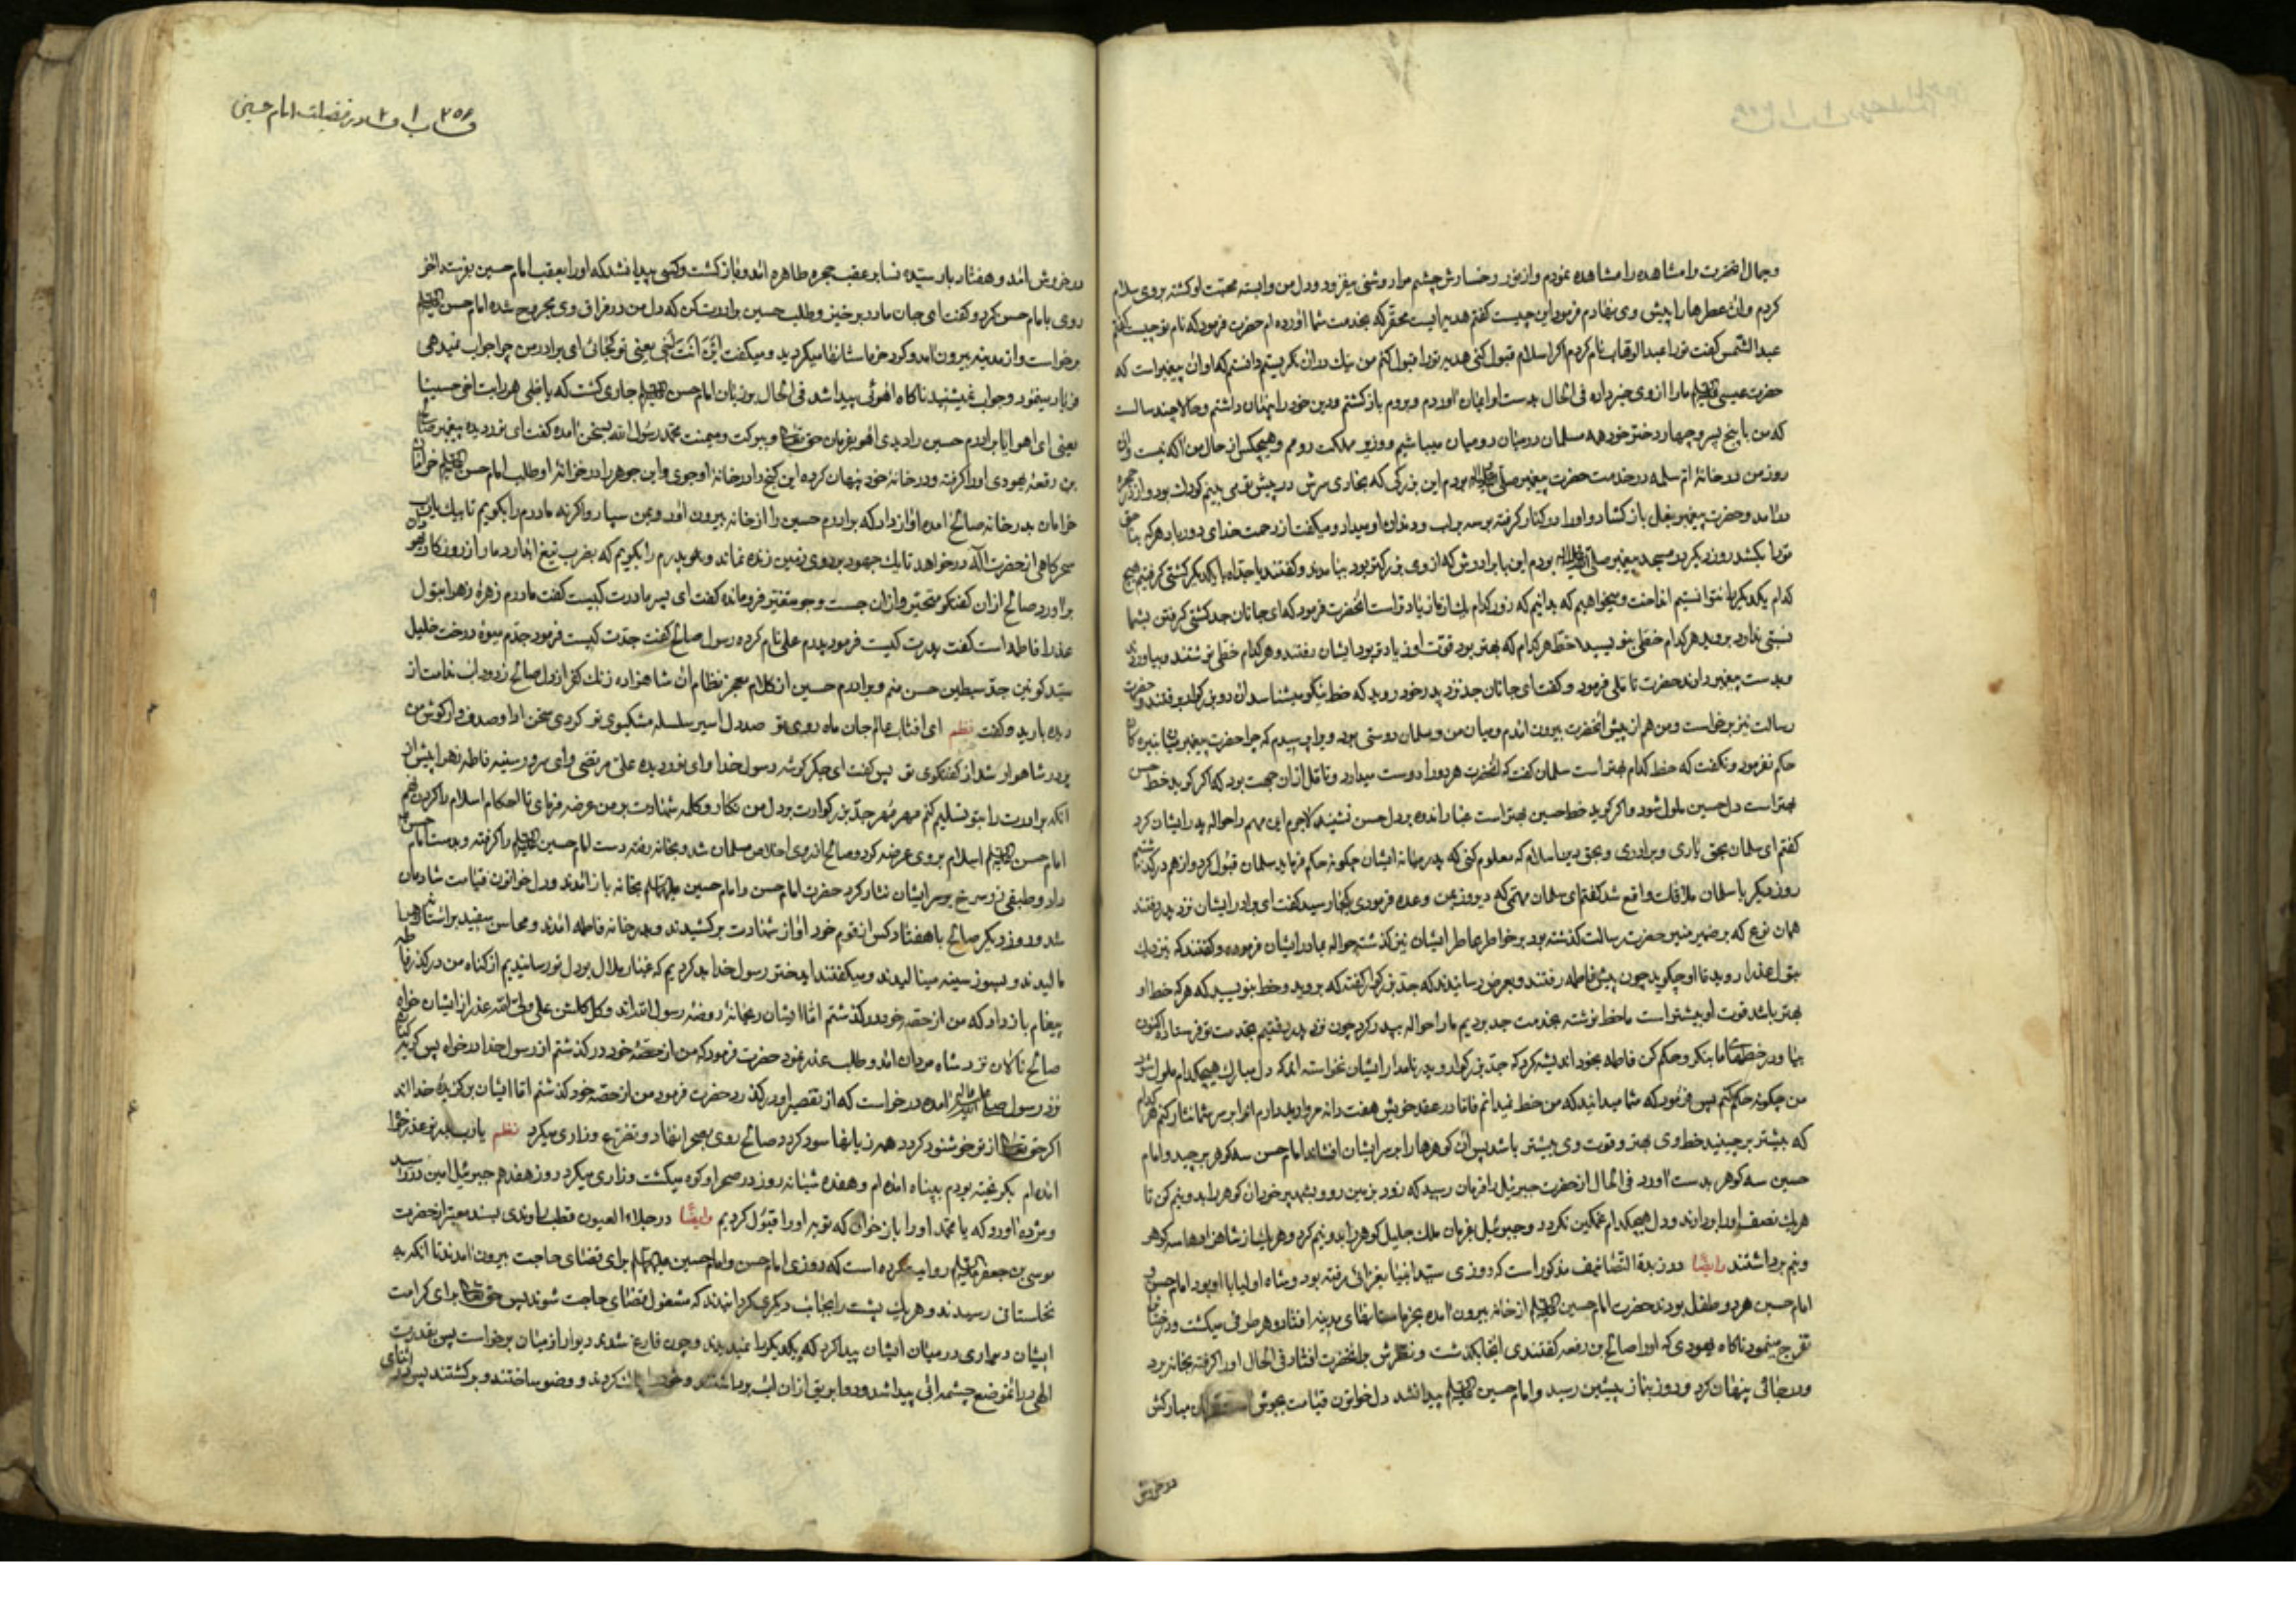 وجمال انحضرت را مشاهده نمودم و از نور رخسارش چشم مرا روشنی میفزود و دل من وابسته محبت او کشته بر وی سلام
کردم و ان عطرها را پیش وی نهادم فرمود این چیست کفتم هدیه ایست محقر که بخدمت شما اورده ام حضرت فرمود که نام تو چیست کفتم
عبد الشمس کفت ترا عبد الوهاب نام کردم اکر اسلام قبول کنی هدیه ترا قبول کنم من نیک در ان نکریستم دانستم که او ان پیغمبر است که
حضرت عیسی ما را از وی خبر داده فی الحال بدست او ایمان اوردم و بروم باز کشتم و دین خود را پنهان داشتم و حالا چند سالست
که من با پنج پسر و چهار دختر خود همه مسلمان در میان رومیان میباشیم و وزیر مملکت رومم و هیچکس از حال من اکه نیست و ان
روز من در خانهٔ ام سلمه در خدمت حضرت پیغمبر بودم این بزرکی که بخاری سرش در پیش تو می بینم کودک بود و از در حجره
درامد و حضرت پیغمبر بغل باز کشاد و او را در کنار کرفته بوسه بر لب و دندان او میداد و میکفت از رحمت خدای دور باد هر که بناحق
ترا بکشد روز دیکر در مسجد پیغمبر بودم این با برادرش که از وی بزرکتر بود بیامدند و کفتند یا جداه با یکدیکر کشتی کرفتیم هیچ
کدام یکدیکر را نتوانستیم انداخت و میخواهیم که بدانیم که زور کدام یک از ما زیادتر است انحضرت فرمود که ای جانان جد کشتی کرفتن بشما
نسبتی ندارد بروید هر کدام خطی بنویسید خط هر کدام که بهتر بود قوت او زیادتر بود ایشان رفتند و هر کدام خطی نوشتند و بیاوردند
و بدست پیغمبر دادند حضرت تاملی فرمود و کفت ای جانان جد نزد پدر خود روید که خط نیکو میشناسد ان دو بزرکوار برفتند و حضرت
رسالت نیز برخاست و من هم از پیش انحضرت بیرون امدم و میان من و سلمان دوستی بود ویرا پرسیدم که چرا حضرت پیغمبر
حکم نفرمود و نکفت که خط کدام بهتر است سلمان کفت که انحضرت هر دو را دوست میدارد و تامل ازان جهت بود که اکر کوید خط حسن
بهتر است دل حسین ملول شود و اکر کوید خط حسین بهتر است غبار اندوه بر دل حسن نشیند لاجرم این مهم را حواله پدر ایشان کرد
کفتم ای سلمان بحق یاری و برادری و بحق دین اسلام که معلوم کنی که پدر میانه ایشان چکونه حکم فرماید سلمان قبول کرد و از هم درکذشتیم تا
روز دیکر با سلمان ملاقات واقع شد کفتم ای سلمان مهمی که دیروز بمن وعده فرمودی بکجا رسید کفت ای برادر ایشان نزد پدر رفتند
همان نوع که بر ضمیر منیر حضرت رسالت کذشته بود بر خواطر عاطر ایشان نیز کذشته حواله بمادر ایشان فرموده و کفتند که نزدیک
بتول عذرا روید تا او چکوید چون پیش فاطمه رفتند و بعرض رسانیدند که جد بزرکوار کفته که بروید و خط بنویسید که هر که خط او
بهتر باشد قوت او بیشتر است ما خط نوشته بخدمت جد بردیم ما را حواله بپدر کرد چون نزد پدر رفتیم بخدمت تو فرستاد اکنون
بیا و در خطهای ما بنکر و حکم کن فاطمه بخود اندیشه کرد که جد بزرکوار و پدر نامدار ایشان نخواسته اند که دل مبارک هیچکدام ملول شود
من چکونه حکم کنم پس فرمود که شما میدانید که من خط نمیدانم فاما در عقد خویش هفت دانه مروارید دارم انرا بر سر شما نثار کنم هر کدام
که بیشتر برچینید خط وی بهتر و قوت وی بیشتر باشد پس ان کوهرها را بر سر ایشان افشاند امام حسن سه کوهر برچید و امام
حسین سه کوهر بدست اورد فی الحال از حضرت جبرئیل را فرمان رسید که زود بزمین رو و بشهپر خود ان کوهر را بدو نیم کن تا
هر یک نصف اورا بردارند و دل هیچکدام غمکین نکردد و جبرئیل بفرمان ملک جلیل کوهر را بدو نیم کرد و هر یک از شاهزادها سه کوهر
و نیم برداشتند وایضًا در زبدة التصانیف مذکور است که روزی سید انبیا بغزائی رفته بود و شاه اولیا با او بود امام حسن و
امام حسین هر دو طفل بودند حضرت امام حسین از خانه بیرون امده بخرماستانهای مدینه افتاد و هر طرفی میکشت و درختان
تفرج مینمود ناکاه یهودی که اورا صالح بن رقعه کفتندی انجا بکذشت و نظرش بر انحضرت افتاد فی الحال اورا کرفته بخانه برد
و در جائی پنهان کرد و روز بنماز پیشین رسید و امام حسین پیدا نشد دل خواتون قیامت بجوش مبارکش
در خروش
۲۵۶ فضیلت امام حسین
در خروش امد و هفتاد بار سیده نسا بر عقب حجره طاهره امد و باز کشت و کسی پیدا نشد که اورا بعقب امام حسین بفرستد اخر
روی بامام حسن کرد و کفت ای جان مادر برخیز و طلب حسین برادرت کن که دل من در فراق وی مجروح شده امام حسن
برخواست و از مدینه بیرون امد و کرد خرماستانها میکردید و میکفت اینَ انتَ اَخی یعنی تو کجائی ای برادر من چرا جواب نمیدهی
فریاد مینمود و جواب نمیشنید ناکاه اهوئی پیدا شد فی الحال بر زبان امام حسن جاری کشت که یا ظبی هل رایت اخی حسینا
یعنی ای اهو ایا برادرم حسین را دیدی اهو بفرمان حق تعالی و ببرکت و میمنت محمد رسول الله بسخن امده کفت ای نور دیده پیغمبر صالح
بن رقعهٔ یهودی اورا کرفته و در خانهٔ خود پنهان کرده این کنج را در خانهٔ او جوی و این جوهر را در خزانهٔ او طلب امام حسن خرامان
خرامان بدر خانه صالح امده اواز داد که برادرم حسین را از خانه بیرون اور و بمن سپار و اکر نه مادرم را بکویم تا بیک یارب
سحرکاهی از حضرت اله درخواهد تا یک جهود بر روی زمین زنده نماند و بپدرم را بکویم که بضرب تیغ ابدار دمار از روزکار یهود
براورد صالح از ان کفتکو متحیر و از ان جست و جو متفکر فرومانده کفت ای پسر مادرت کیست کفت مادرم زهرهٔ زهرا بتول
عذرا فاطمه است کفت پدرت کیست فرمود پدرم علی نام کرده رسول صالح کفت جدت کیست فرمود جدم میوهٔ درخت خلیل
سید کونین جد سبطین حسن منم و برادرم حسین از کلام معجز نظام ان شاهزاده زنک کفر از دل صالح زدود اب ندامت از
دیده بارید و کفت نظم ای افتاب عالم جان ماه روی تو صد دل اسیر سلسله مشکبوی تو کردی سخن ادا و صدف وار کوش من
پر در شاهوار شد از کفتکوی تو پس کفت ای جکر کوشه رسول خدا و ای نور دیده علی مرتضی و ای سرور سینه فاطمه زهرا پیش از
انکه برادرت را بتو تسلیم کنم مهر مُهر جد بزرکوارت بر دل من نکار و کلمه شهادت بر من عرضه فرمای تا احکام اسلام را کردن نهم
امام حسن اسلام بر وی عرضه کرد و صالح از روی اخلاص مسلمان شد و بخانه رفته دست امام حسین را کرفته و بدست امام حسن
داد و طبقی زر سرخ بر سر ایشان نثار کرد حضرت امام حسن و امام حسین بخانه باز امدند و دل خواتون قیامت شادمان
شد و روز دیکر صالح با هفتاد کس از قوم خود اواز شهادت برکشیدند و بدر خانه فاطمه امدند و محاسن سفید بر استان
مالیدند و بسوز سینه مینالیدند و میکفتند ای دختر رسول خدا بد کردیم که غبار ملال بر دل تو رسانیدیم از کناه من درکذر فاطمه
پیغام باز داد که من از حصه خود درکذشتم اما ایشان ریحانهٔ روضه رسول الله اند و کل کلشن علی ولی الله عذر از ایشان خواه
صالح نالان نزد شاه مردان امد و طلب عذر نمود حضرت فرمود که من از حصهٔ خود درکذشتم از رسول خدا درخواه پس کریه کنان
نزد رسول امده درخواست که از تقصیر او درکذرد حضرت فرمود من از حصه خود کذشتم اما ایشان برکزیدهٔ خدا اند
اکر حق تعالی از تو خوشنود کردد همه زیانها سود کردد صالح روی بصحرا نهاد و تضرع و زاری میکرد نظم یا رب بدر تو عذر خواه
امده ام بکریخته بودم بپناه امده ام و هفده شبانه روز در صحرا و کوه میکشت و زاری میکرد روز هفدهم جبرئیل امین در رسید
و مژده اورد که یا محمد اورا باز خوان که توبه اورا قبول کردیم وایضًا در جلاء العیون قطب راوندی بسند معتبر از حضرت
موسی بن جعفر روایت کرده است که روزی امام حسن و امام حسین برای قضای حاجت بیرون امدند تا انکه به
نخلستانی رسیدند و هر یک پشت را بجانب دیکری کردانیدند که مشغول قضای حاجت شوند پس حق تعالی برای کرامت
ایشان دیواری در میان ایشان پیدا کرد که یکدیکر را نمیدیدند و چون فارغ شدند دیوار از میان برخواست پس بقدرت
الهی در انموضع چشمه ابی پیدا شد و دو ابریق از ان اب برداشتند و خود را پاک کردند و وضو ساختند و برکشتند پس در اثنای